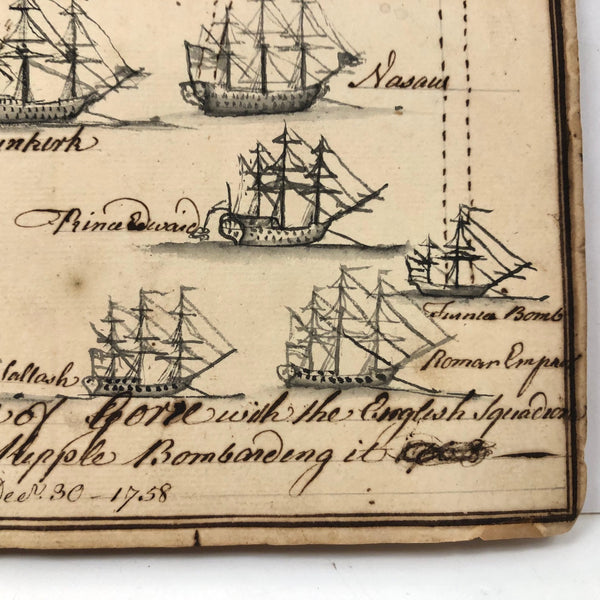 Nasau
unkirk
Prince Edward
Furnice Bomb
Saltash
Roman Emp
of Goree with the English Squadron
Kepple Bombardeng it
Decr. 30 - 1758